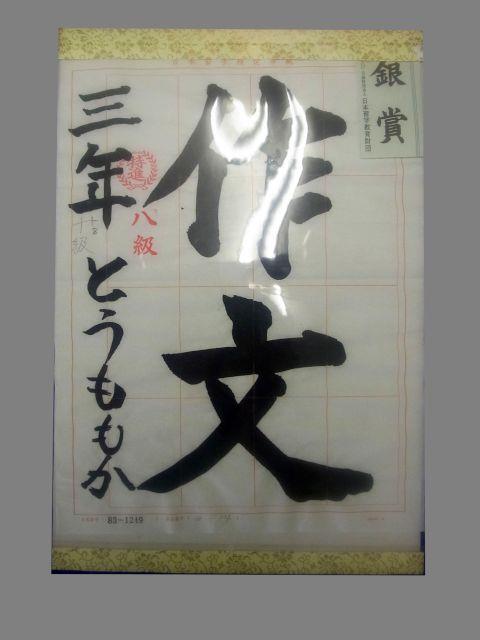 銀賞
日本習字教育財団
作文
特進
八級
三年とうももか
十級
83-1249